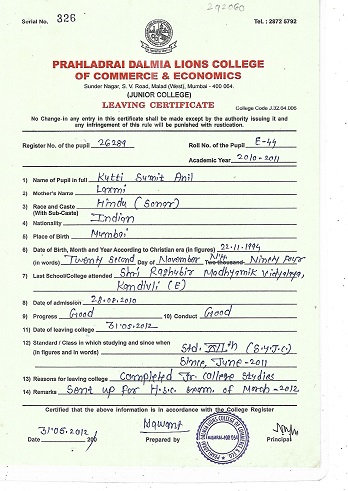 292060
Serial No. 326
Tel.: 2872 5792
PRAHLADRAI DALMIA LIONS COLLEGE
OF COMMERCE & ECONOMICS
Sunder Nagar, S. V. Road, Malad (West), Mumbai - 400 064.
(JUNIOR COLLEGE)
LEAVING CERTIFICATE
College Code J.32.04.006
No Change-in any entry in this certificate shall be made except by the authority issuing it and
any infringement of this rule will be punished with rustication.
Register No. of the pupil 26289 Roll No. of the Pupil E-44
Academic Year 2010-2011
1) Name of Pupil in full Kutti Sumit Anil
2) Mother's Name Laxmi
3) Race and Caste Hindu (Sonar)
(With Sub-Caste)
4) Nationality Indian
5) Place of Birth Mumbai
6) Date of Birth, Month and Year According to Christian era (in figures) 22.11.1994
(in words) Twenty Second Day of November Two thousand Ninety Four
7) Last School/College attended Shri Raghubir Madhyamik Vidyalaya,
Kandivli (E)
8) Date of admission 28.08.2010
9) Progress Good 10) Conduct Good
11) Date of leaving college 31.05.2012
12) Standard / Class in which studying and since when Std. XIIth (S.Y.J.C.)
(in figures and in words) Since, June-2011
13) Reasons for leaving college Completed Jr. College Studies
14) Remarks Sent up for H.S.C. Exam. of March-2012
Certified that the above information is in accordance with the College Register
Date 31.05.2012 200 Prepared by Principal